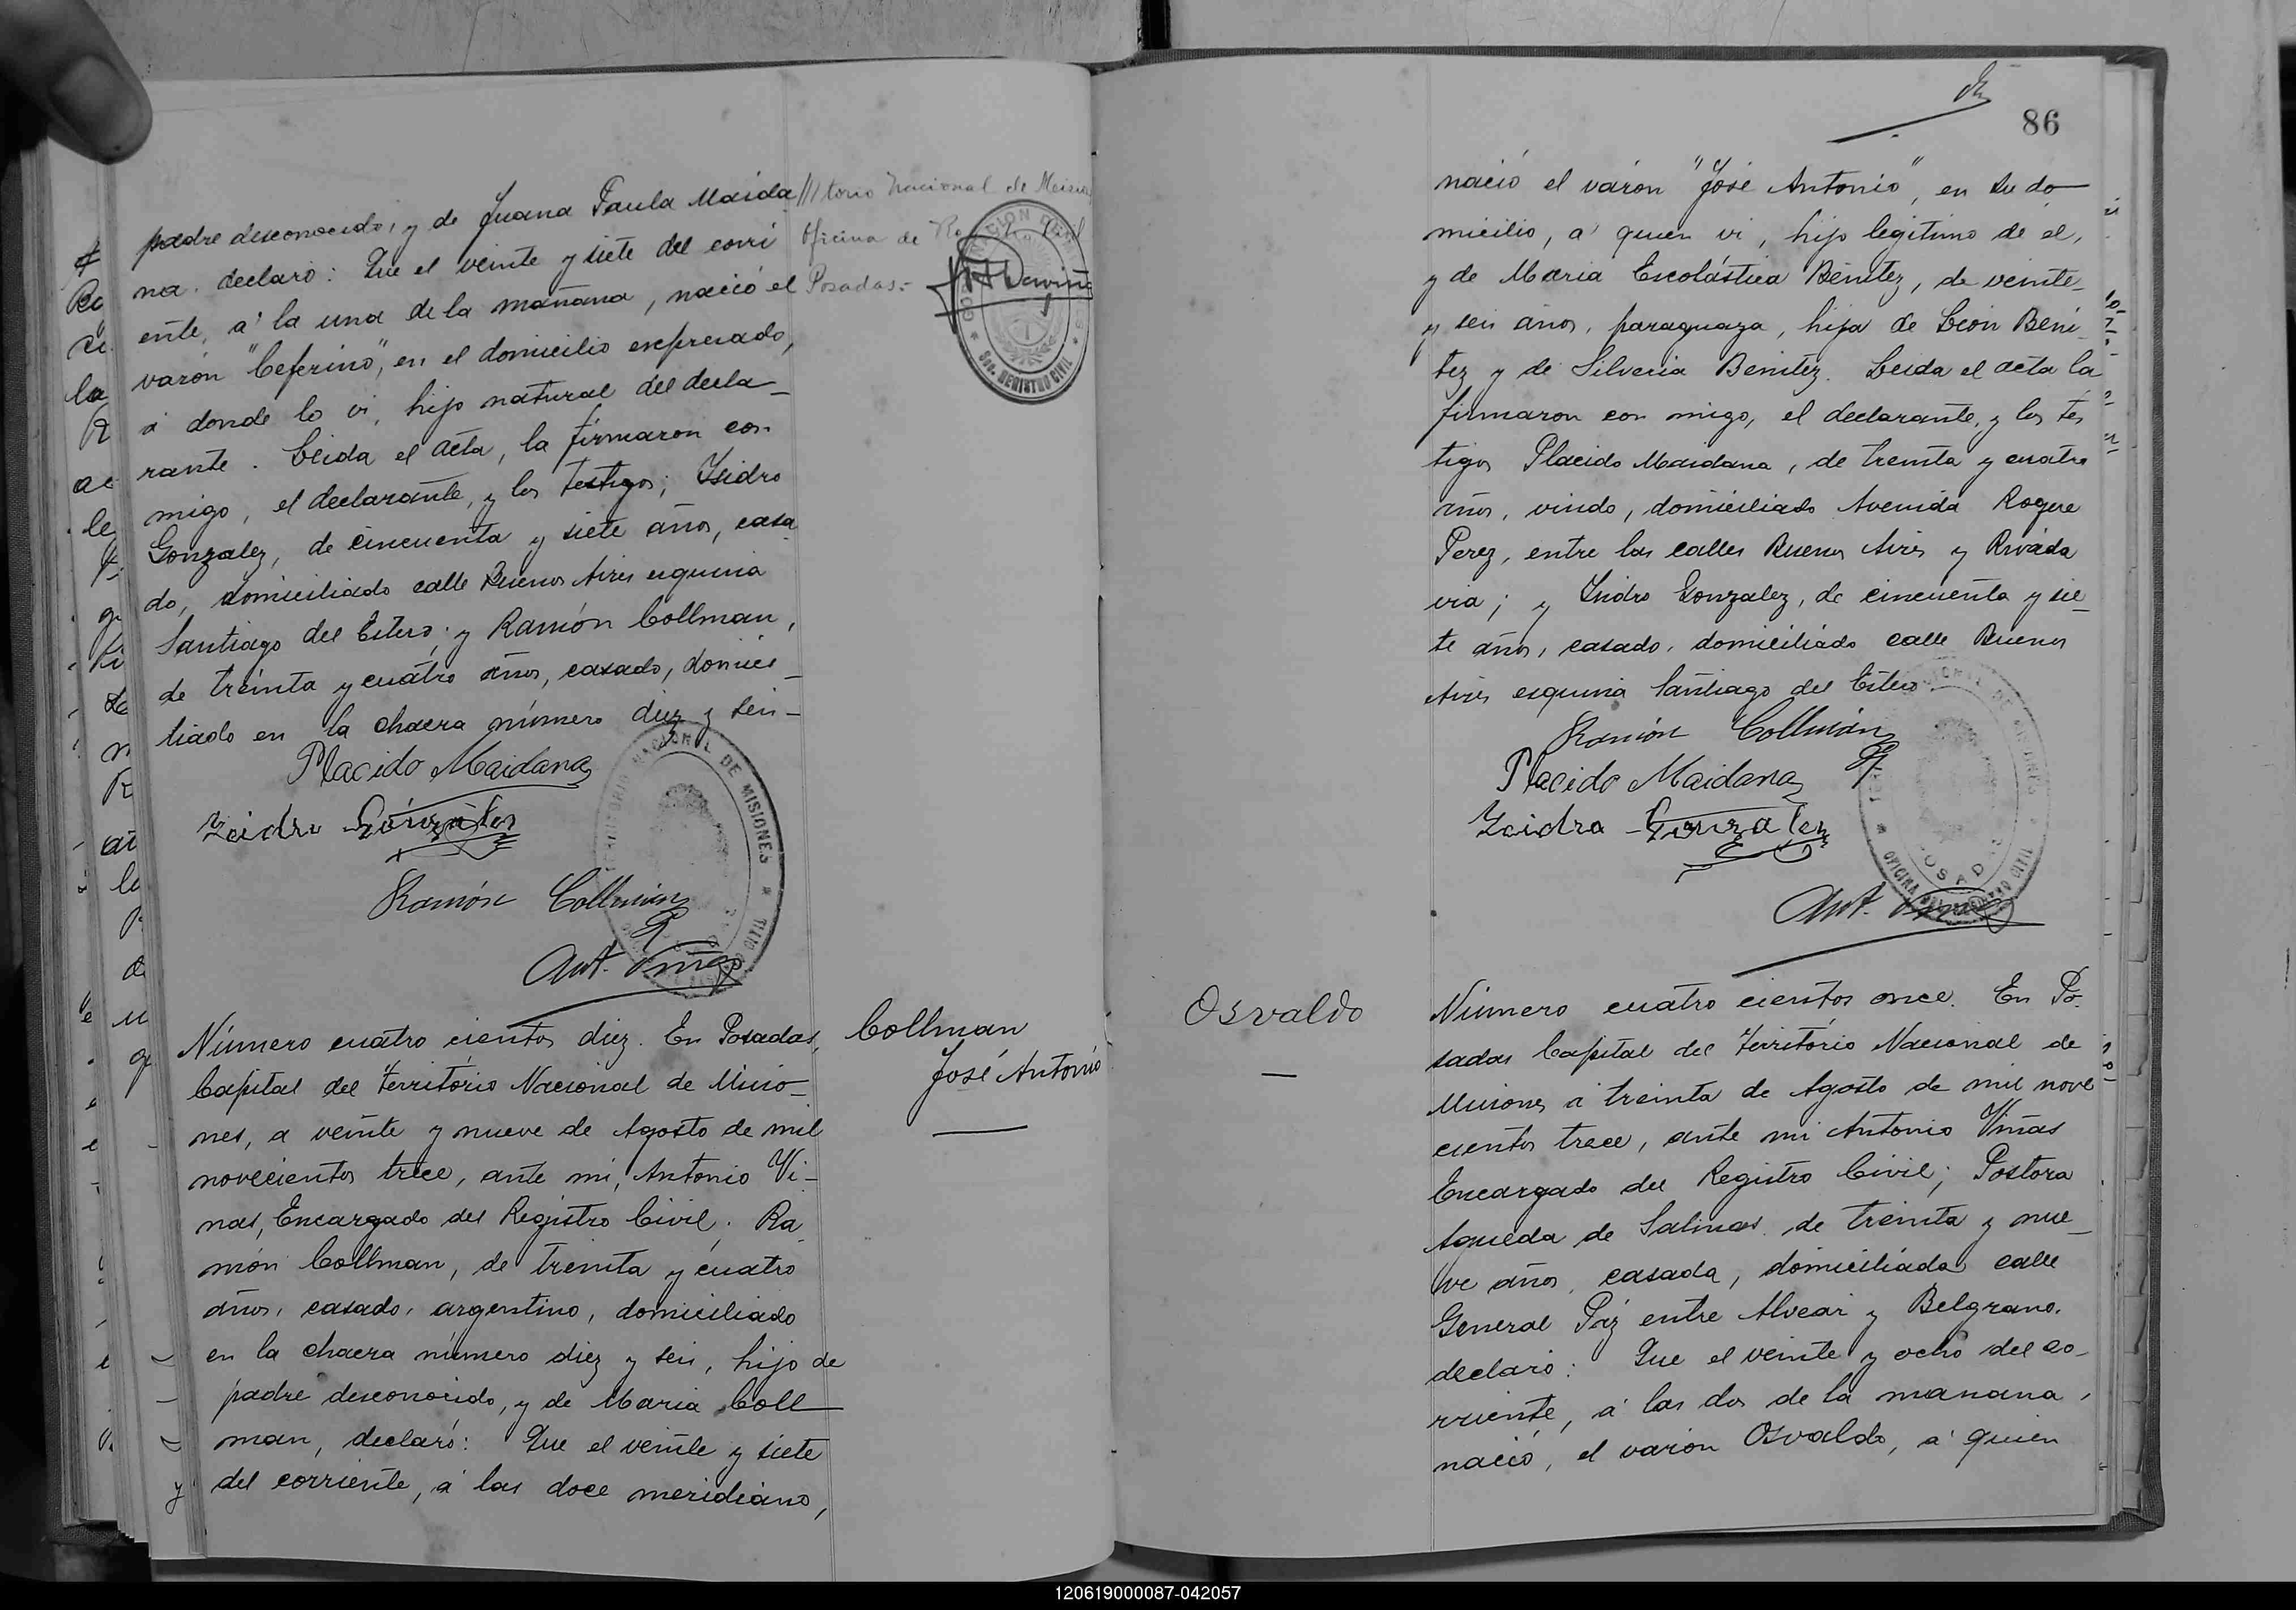 padre desconocido, y de Juana Paula Maida
na. declaró: Que el veinte y siete del corri
ente, á la una de la mañana, nació el
varón "Ceferino", en el domicilio expresado,
á donde lo vi, hijo natural del decla-
rante. Leida el acta, la firmaron con
migo, el declarante, y los testigos; Isidro
Gonzalez, de cincuenta y siete años, casa
do, domiciliado calle Buenos Aires esquina
Santiago del Estero; y Ramón Collman,
de treinta y cuatro años, casado, domici-
liado en la chacra número diez y seis-
Placido Maidana
Isidro Gonzales
Ramón Collman
Ant. Viñas
TERRITORIO NACIONAL DE MISIONES
Número cuatro cientos diez. En Posadas,
Capital del Território Nacional de Misio-
nes, a veinte y nueve de Agosto de mil
novecientos trece, ante mi, Antonio Vi-
nas, Encargado del Registro Civil; Ra
món Collman, de treinta y cuatro
años, casado, argentino, domiciliado
en la chacra número diez y seis, hijo de
padre desconocido, y de Maria Coll
man, declaró: Que el veinte y siete
del corriente, á las doce meridiano,
///torio Nacional de Misiones
Oficina de
Posadas.-
SEC. REGISTRO CIVIL
Collman
José Antonio
86
nació el varón "José Antonio", en su do
micilio, a quien vi, hijo legitimo de el,
y de Maria Escolástica Benitez, de veinte
y seis años, paraguaya, hija de León Beni
tez y de Silveria Benitez. Leida el acta la
firmaron con migo, el declarante, y los tes
tigos Placido Maidana, de treinta y cuatro
años, viudo, domiciliado Avenida Roque
Perez, entre las calles Buenos Aires y Rivada
via; y Isidro Gonzalez, de cincuenta y sie-
te años, casado, domiciliado calle Buenos
Aires esquina Santiago del Estero.-
Ramón Collmán
Placido Maidana
Isidro Gonzalez
Ant. Viñas
Osvaldo
Número cuatro cientos once. En Po-
sadas Capital del Território Nacional de
Misiones á treinta de Agosto de mil nove
cientos trece, ante mi Antonio Viñas
Encargado del Registro Civil; Postora
Agueda de Salinas de treinta y nue-
ve años, casada, domiciliada calle
General Paz entre Alvear y Belgrano.
declaró: Que el veinte y ocho del co-
rriente, á las dos de la manana,
nació, el varon Osvaldo, á quien
120619000087-042057